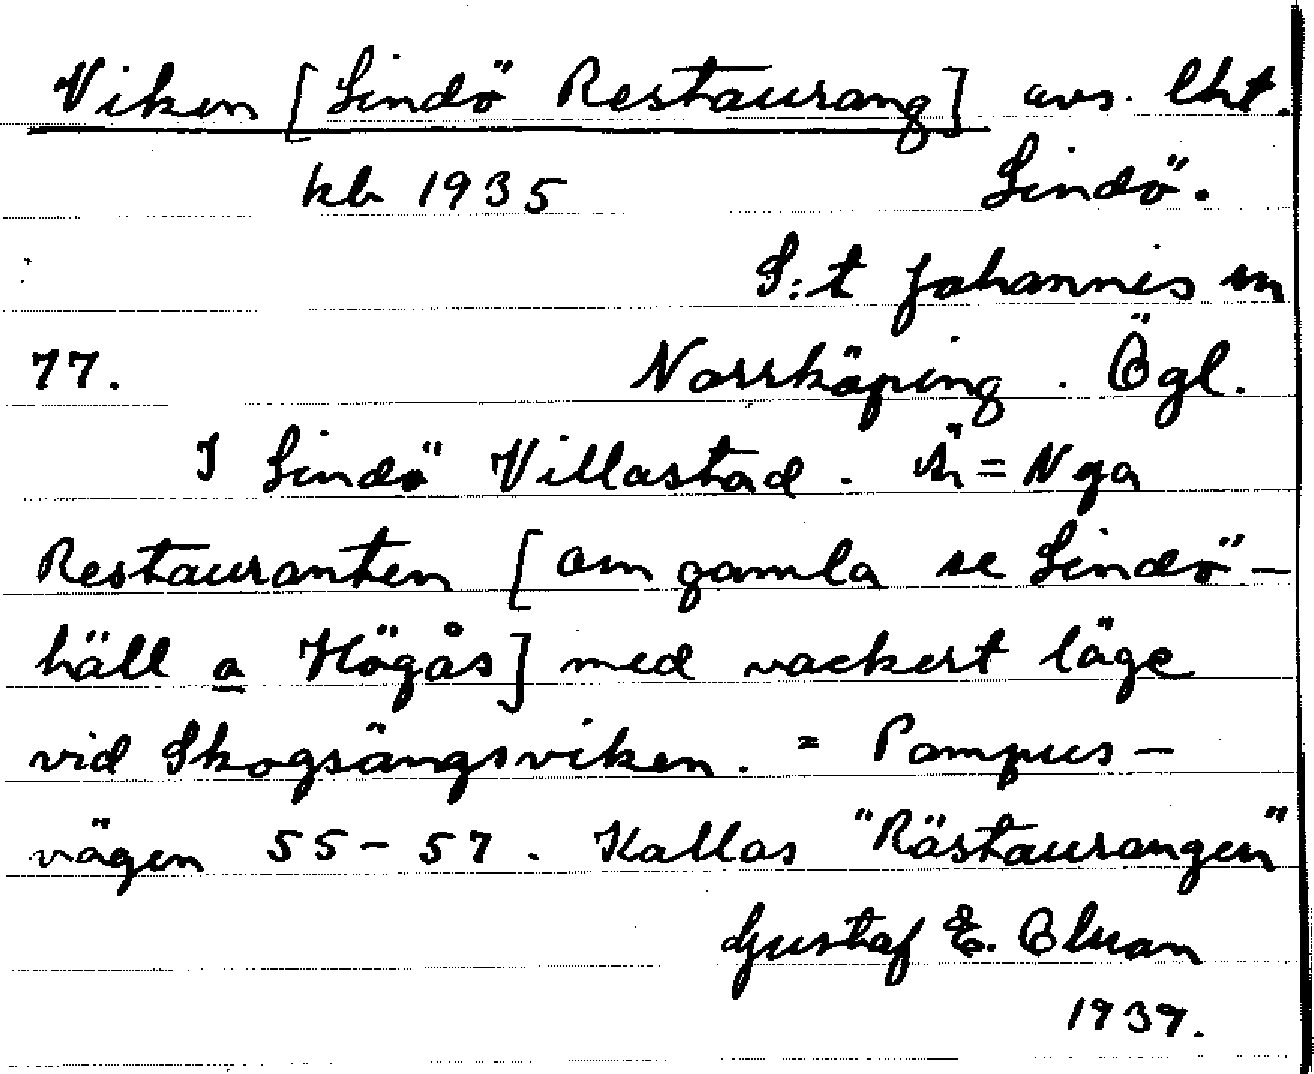 Viken [Lindö Restaurang] avs. lht.
kb 1935 Lindö.
S:t Johannis sn
77. Norrköping. Ögl.
I Lindö Villastad. Är = Nya
Restauranten [om gamla se Lindö-
häll a Högås] med vackert läge
vid Skogsängsviken. = Pampus-
vägen 55-57. Kallas "Rästaurangen"
Gustaf E.
1937.